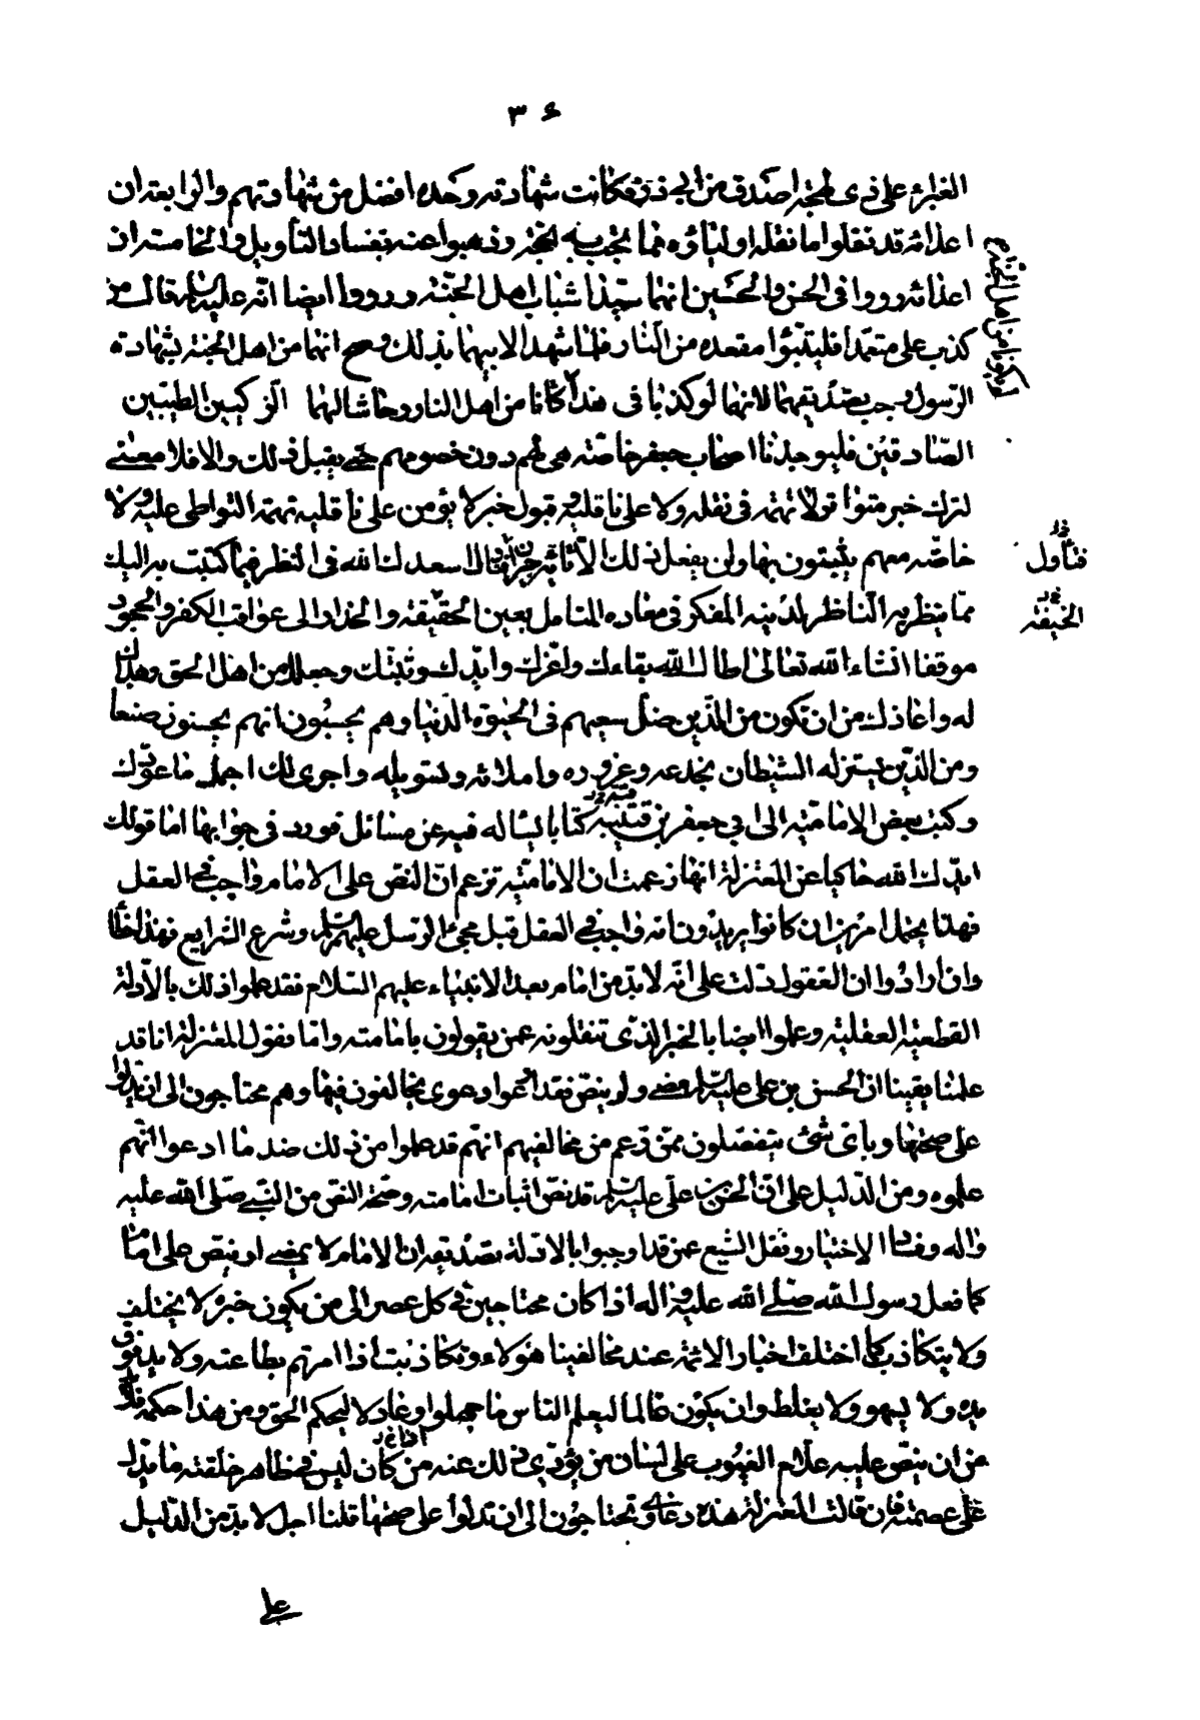 ٣٦
الغبراء على ذى لهجة اصدق من ابى ذر فكانت شهادته وحده افضل من شهادتهم والرابعة ان
اعدائه قد نقلوا ما نقله اولياؤه مما تجب به الحجة وذهبوا عنه بفساد التأويل والخامسة ان
اعدائه رووا فى الحسن والحسين انهما سيدا شباب اهل الجنة ورووا ايضا انه عليه السلم قال من
كذب على متعمدا فليتبوّا مقعده من النار فلما شهدا لابيهما بذلك وصح انهما من اهل الجنة بشهادة
الرسول وجب تصديقهما لانهما لو كذبا فى هذا لكانا من اهل النار وحاشا لهما الزكيين الطيبين
الصادقين فليوجدنا اصحاب جعفر خاصة هى لهم دون خصومهم حتى يقبل ذلك والا فلا معنى
لترك خبر متواتر لا تهمة فى نقله ولا على ناقليه وقبول خبر لا يؤمن على ناقليه تهمة التواطى عليه ولا
خاصة معهم يثبتون بها ولن يفعل ذلك الا تائه حيران فتأمل اسعدك الله فى النظر فيما كتبت به اليك
مما ينظر به الناظر لدينه المفكر فى معاده المتامل بعين الحقيقة والحذار الى عواقب الكفر والجحود
موفقا انشاء الله تعالى اطال الله بقاءك واعزك وايدك وثبتك وجعلك من اهل الحق وهداك
له واعاذك من ان تكون من الذين ضل سعيهم فى الحيوة الدنيا وهم يحسبون انهم يحسنون صنعا
ومن الذين يستزله الشيطان بخدعه وغروره واملائه وتسويله واجرى لك اجمل ما عودك
وكتب بعض الامامية الى ابى جعفر بن قتيبة كتابا يسئاله فيه عن مسائل فورد فى جوابها اما قولك
ايدك الله حاكيا عن المعتزلة انها زعمت ان الامامية تزعم ان النص على الامام واجب فى العقل
فهذا يحتمل امرين ان كانوا يريدون انه واجب فى العقل قبل مجئ الرسل عليهم السلم وشرع الشرايع فهذا خطأ
وان ارادوا ان العقول دلت على انه لا بد من امام بعد الانبياء عليهم السلام فقد علموا ذلك بالادلة
القطعية العقلية وعلموا ايضا بالخبر الذى تنقلونه عمن يقولون بامامته واما نقول المعتزلة انا قد
علمنا يقينا ان الحسن بن على عليه السلم مضى ولم ينص فقد ادعوا دعوى يخالفون فيها وهم محتاجون الى ان يدلوا
على صحتها وباى شئ يتفصلون ممن زعم من مخالفيهم انهم قد علموا من ذلك ضد ما ادعوا انهم
علموه ومن الدليل على ان الحسن بن على عليه السلم قد نص اثبات امامته وصحة النص من النبى صلى الله عليه
واله وفساد الاختيار ونقل الشيع عمن قد اوجبوا بالادلة تصديقه ان الامام لا يمضى او ينص على امام
كما فعل رسول الله صلى الله عليه واله اذا كان محتاجين فى كل عصر الى من يكون خبره لا يختلف
ولا يتكاذب كما اختلف اخبار الائمة عند مخالفينا هؤلاء وتكاذبت اذا امرتهم بطاعته ولا يد فوق
يده ولا يسهو ولا يغلط وان يكون عالما ليعلم الناس ما جهلوا وعادلا ليحكم الحق ومن هذا حكمه فلا بد
من ان ينص عليه علام الغيوب على لسان من يؤدى ذلك عنه من كان ليس فى ظاهر خلقته ما يدل
على عصمته فان قالت المعتزلة هذه دعاوى تحتاجون الى ان تدلوا على صحتها قلنا اجل لا بد من الدليل
على